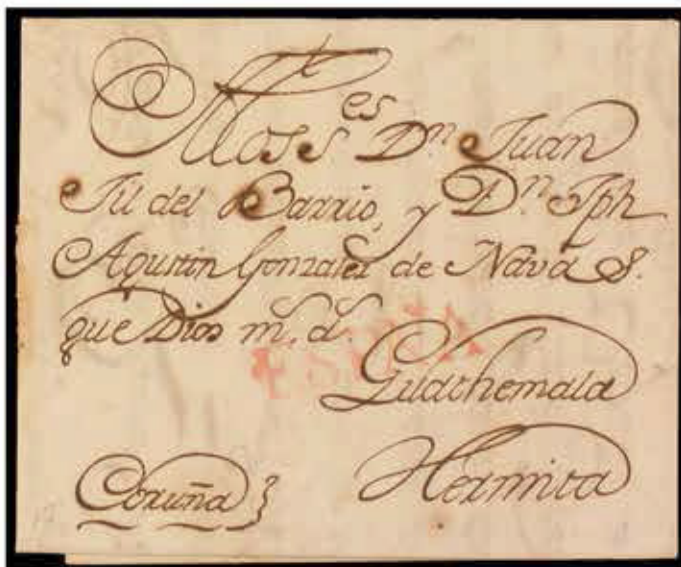 A los S.es D.n Juan
Jil del Barrio, y D.n Jph
Agustin Gonzalez de Nava S.
que Dios m.s a.s
ESPAÑA
Guathemala
Coruña
Hermita